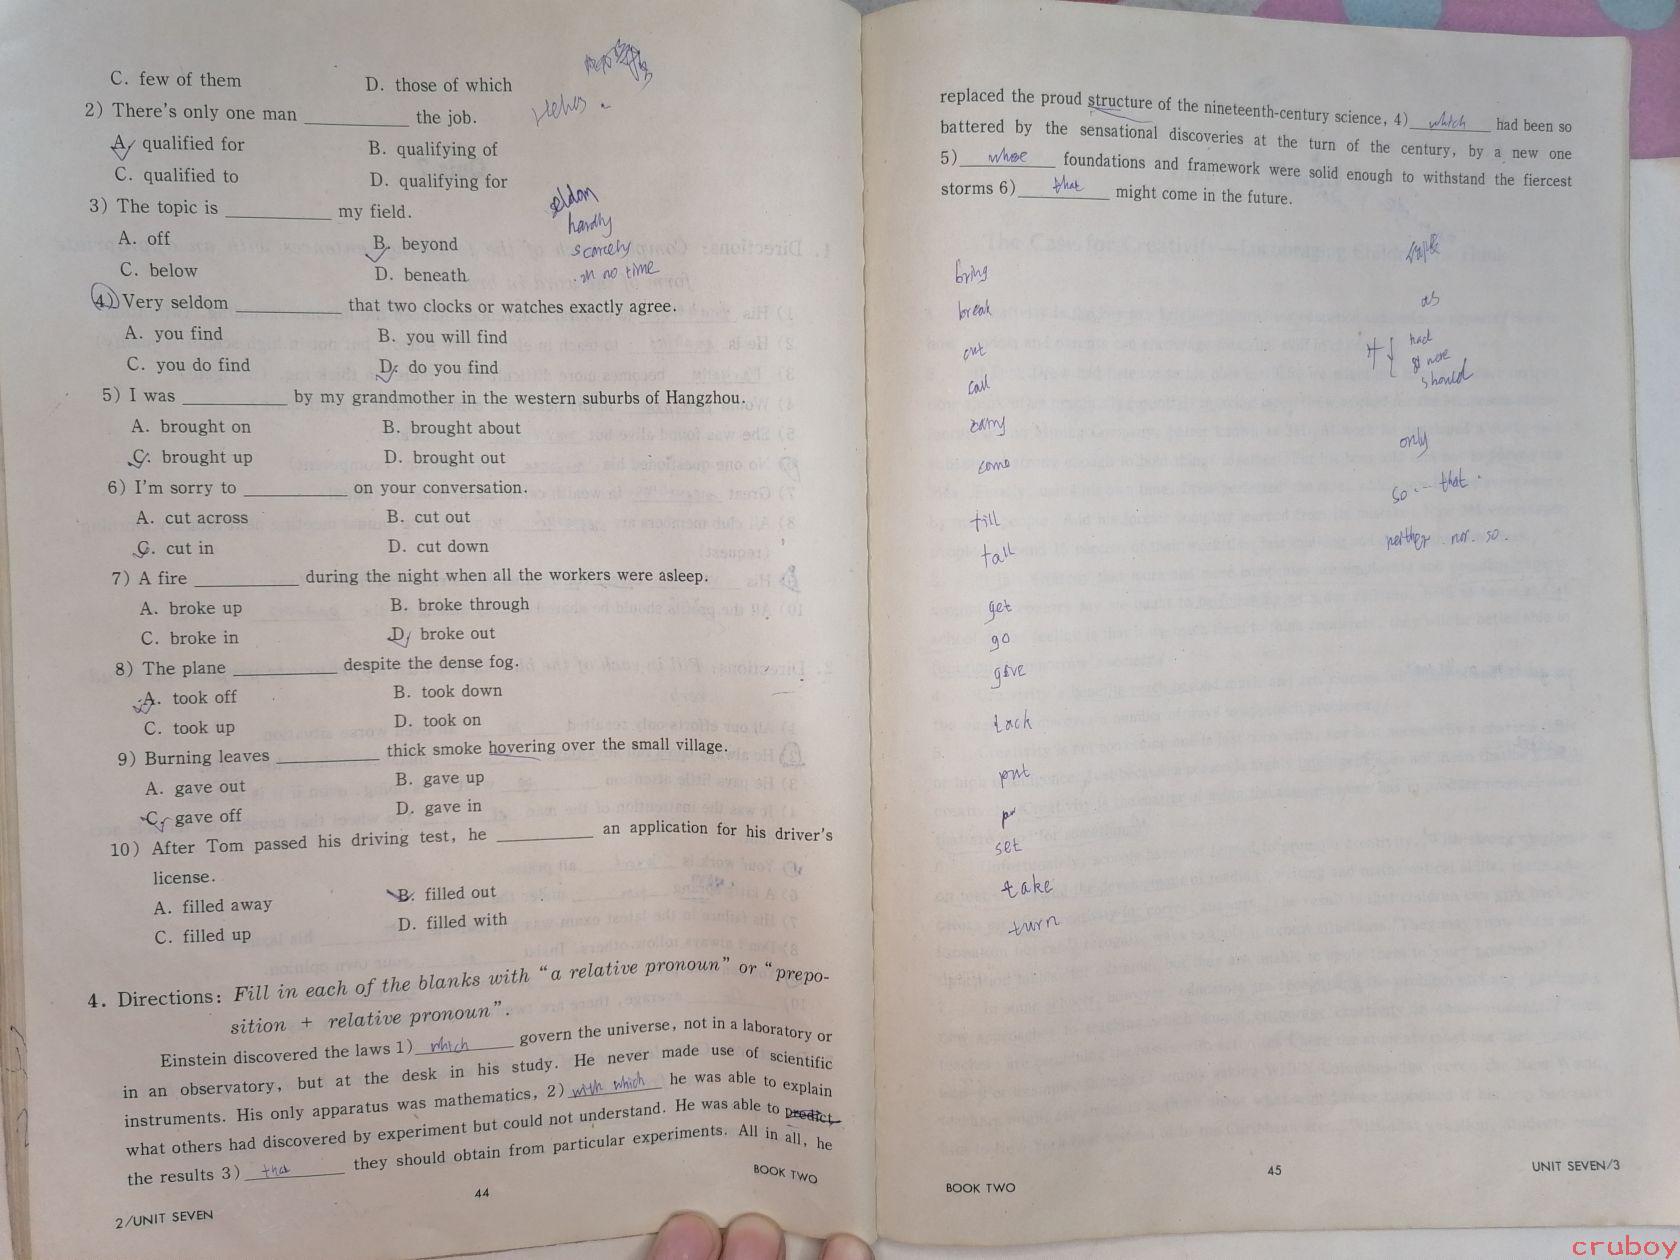 C. few of them
D. those of which
2) There's only one man __________ the job.
A. qualified for
B. qualifying of
C. qualified to
D. qualifying for
3) The topic is __________ my field.
A. off
B. beyond
C. below
D. beneath
4) Very seldom __________ that two clocks or watches exactly agree.
A. you find
B. you will find
C. you do find
D. do you find
5) I was __________ by my grandmother in the western suburbs of Hangzhou.
A. brought on
B. brought about
C. brought up
D. brought out
6) I'm sorry to __________ on your conversation.
A. cut across
B. cut out
C. cut in
D. cut down
7) A fire __________ during the night when all the workers were asleep.
A. broke up
B. broke through
C. broke in
D. broke out
8) The plane __________ despite the dense fog.
A. took off
B. took down
C. took up
D. took on
9) Burning leaves __________ thick smoke hovering over the small village.
A. gave out
B. gave up
C. gave off
D. gave in
10) After Tom passed his driving test, he __________ an application for his driver's
license.
A. filled away
B. filled out
C. filled up
D. filled with
seldom
hardly
scarcely
in no time
4. Directions: Fill in each of the blanks with “a relative pronoun” or “prepo-
sition + relative pronoun”.
Einstein discovered the laws 1) which govern the universe, not in a laboratory or
in an observatory, but at the desk in his study. He never made use of scientific
instruments. His only apparatus was mathematics, 2) with which he was able to explain
what others had discovered by experiment but could not understand. He was able to predict
the results 3) that they should obtain from particular experiments. All in all, he
BOOK TWO
44
2/UNIT SEVEN
replaced the proud structure of the nineteenth-century science, 4) which had been so
battered by the sensational discoveries at the turn of the century, by a new one
5) whose foundations and framework were solid enough to withstand the fiercest
storms 6) that might come in the future.
bring
break
cut
call
carry
come
fill
fall
get
go
give
put
set
take
turn
as
had
were
should
only
so --- that
neither. nor. so.
45
UNIT SEVEN/3
BOOK TWO
cruboy